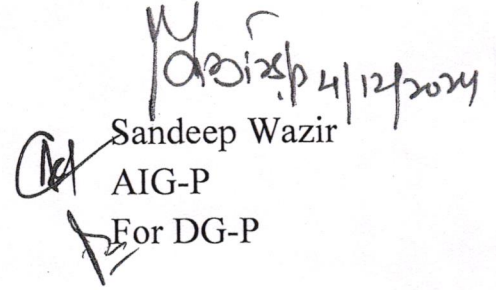 4/12/2024
Sandeep Wazir
AIG-P
For DG-P